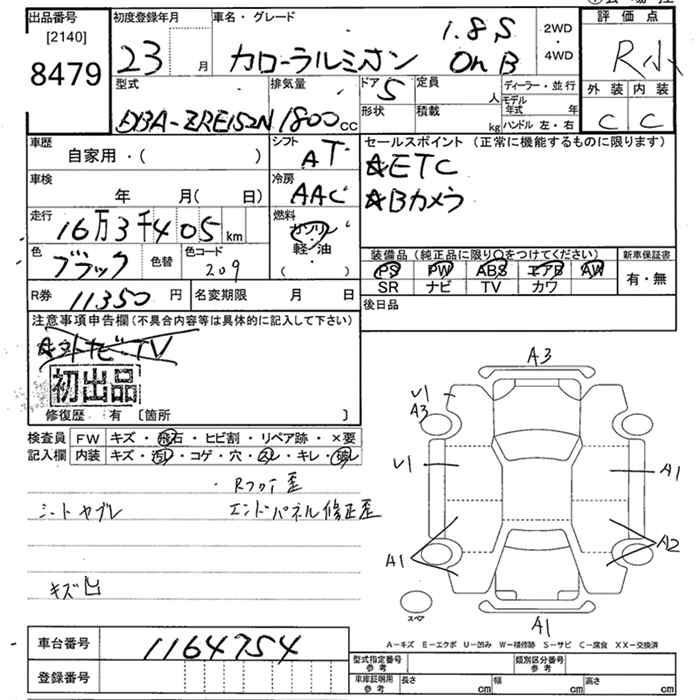 出品番号
[2140]
8479
初度登録年月
23 月
車名・グレード
カローラルミオン
1.8S
On B
2WD
・
4WD
評価点
R小
外装 内装
C C
型式
DBA-ZRE152N
排気量
1800 cc
ドア
5
形状
定員
人
積載
kg
ディーラー・並行
モデル年式 年
ハンドル 左・右
車歴
自家用・( )
シフト
AT
車検
年 月( 日)
冷房
AAC
走行
16万3千405 km
燃料
ガソリン
軽・油
( )
色
ブラック
色替
色コード
209
R券 11350 円
名変期限 月 日
セールスポイント (正常に機能するものに限ります)
☆ETC
☆Bカメラ
装備品 (純正品に限り○をつけてください)
PS PW ABS エアB AW
SR ナビ TV カワ
新車保証書
有・無
後日品
注意事項申告欄(不具合内容等は具体的に記入して下さい)
☆社外ナビ・TV
初出品
修復歴 有 〔箇所 〕
検査員
記入欄
FW キズ・飛石・ヒビ割・リペア跡・×要
内装 キズ・汚レ・コゲ・穴・スレ・キレ・破レ
・Rフロア歪
シートヤブレ エンドパネル修正歪
キズ凹
A3
U1
A3
U1
A1
A1
A2
A1
スペア
A-キズ E-エクボ U-凹み W-補修跡 S-サビ C-腐食 XX-交換済
車台番号 1164754
登録番号
型式指定番号
参考
類別区分番号
参考
車庫証明用
参考
長さ cm 幅 cm 高さ cm